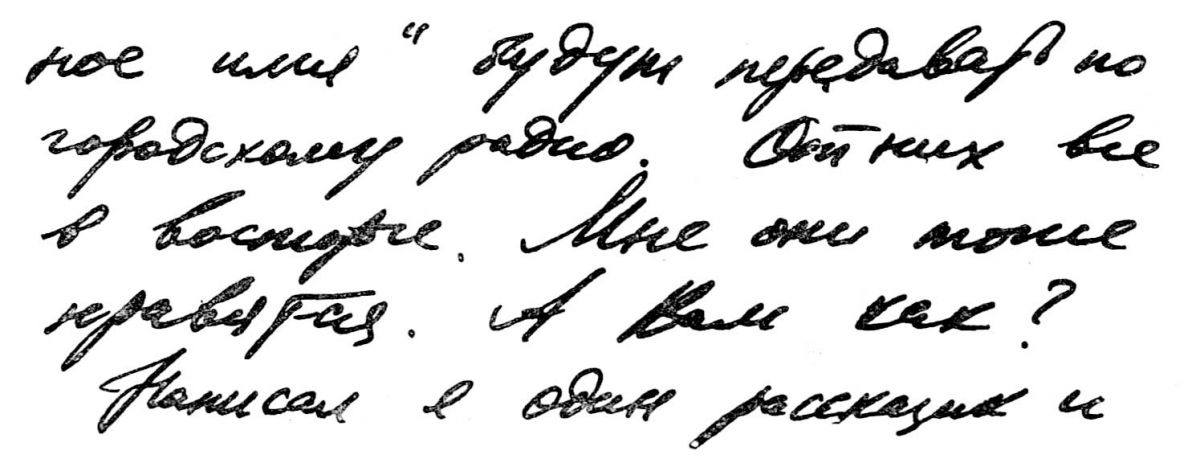 ное имя" будут передавать по
городскому радио. От них все
в восторге. Мне они тоже
нравятся. А Вам как?
Написал я один рассказик и